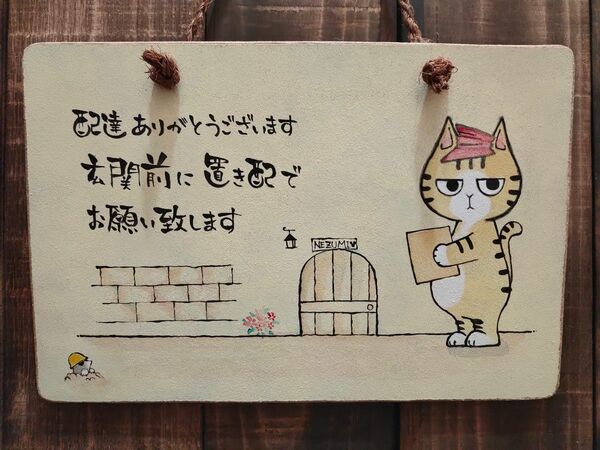 配達ありがとうございます
玄関前に置き配で
お願い致します
NEZUMI